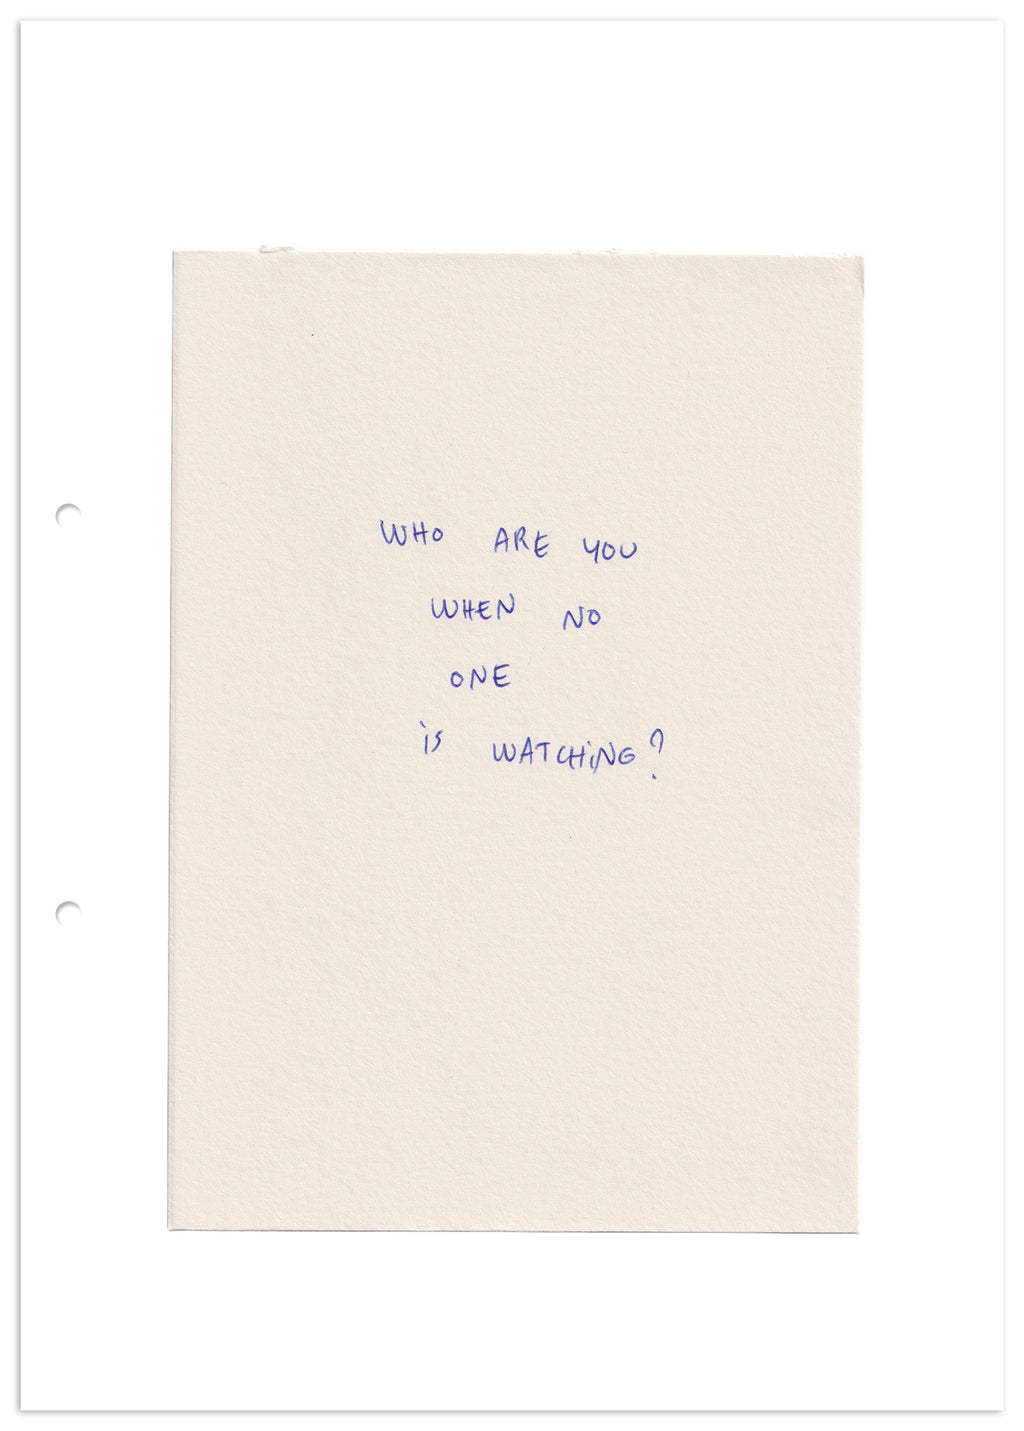 WHO ARE YOU
WHEN NO
ONE
is WATCHiNG?